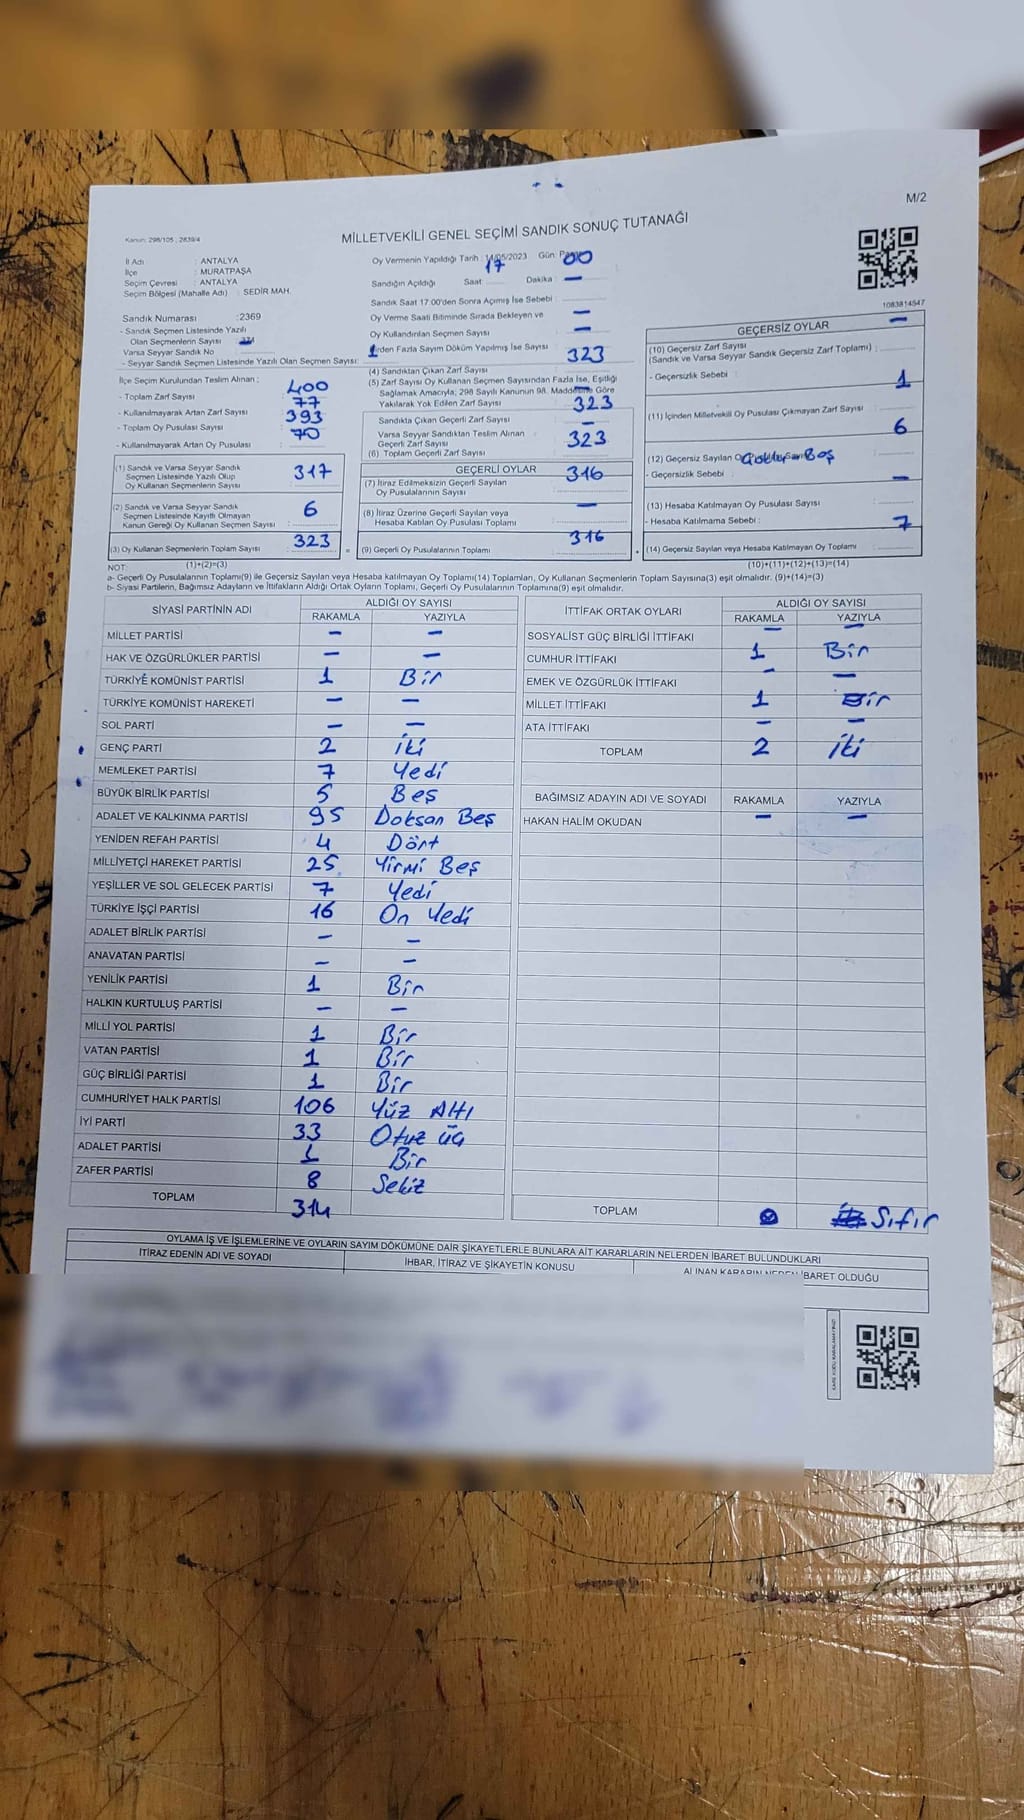 M/2
Kanun: 298/105 ; 2839/4
MİLLETVEKİLİ GENEL SEÇİMİ SANDIK SONUÇ TUTANAĞI
İl Adı : ANTALYA
İlçe : MURATPAŞA
Seçim Çevresi : ANTALYA
Seçim Bölgesi (Mahalle Adı) : SEDİR MAH.
Sandık Numarası :2369
- Sandık Seçmen Listesinde Yazılı
Olan Seçmenlerin Sayısı
Varsa Seyyar Sandık No
- Seyyar Sandık Seçmen Listesinde Yazılı Olan Seçmen Sayısı:
İlçe Seçim Kurulundan Teslim Alınan ;
- Toplam Zarf Sayısı 400
- Kullanılmayarak Artan Zarf Sayısı 77
- Toplam Oy Pusulası Sayısı 393
- Kullanılmayarak Artan Oy Pusulası 70
(1) Sandık ve Varsa Seyyar Sandık
Seçmen Listesinde Yazılı Olup
Oy Kullanan Seçmenlerin Sayısı 317
(2) Sandık ve Varsa Seyyar Sandık
Seçmen Listesinde Kayıtlı Olmayan
Kanun Gereği Oy Kullanan Seçmen Sayısı 6
(3) Oy Kullanan Seçmenlerin Toplam Sayısı 323
(1)+(2)=(3)
Oy Vermenin Yapıldığı Tarih : 14/05/2023 Gün:
Sandığın Açıldığı Saat 17 Dakika 00
Sandık Saat 17:00'den Sonra Açımış İse Sebebi : –
Oy Verme Saati Bitiminde Sırada Bekleyen ve
Oy Kullandırılan Seçmen Sayısı –
Birden Fazla Sayım Döküm Yapılmış İse Sayısı –
(4) Sandıktan Çıkan Zarf Sayısı 323
(5) Zarf Sayısı Oy Kullanan Seçmen Sayısından Fazla İse, Eşitliği
Sağlamak Amacıyla; 298 Sayılı Kanunun 98. Maddesine Göre
Yakılarak Yok Edilen Zarf Sayısı –
Sandıkta Çıkan Geçerli Zarf Sayısı 323
Varsa Seyyar Sandıktan Teslim Alınan
Geçerli Zarf Sayısı –
(6) Toplam Geçerli Zarf Sayısı 323
GEÇERLİ OYLAR
(7) İtiraz Edilmeksizin Geçerli Sayılan
Oy Pusulalarının Sayısı 316
(8) İtiraz Üzerine Geçerli Sayılan veya
Hesaba Katılan Oy Pusulası Toplamı –
(9) Geçerli Oy Pusulalarının Toplamı 316
1083814547
GEÇERSİZ OYLAR
(10) Geçersiz Zarf Sayısı –
(Sandık ve Varsa Seyyar Sandık Geçersiz Zarf Toplamı)
- Geçersizlik Sebebi :
(11) İçinden Milletvekili Oy Pusulası Çıkmayan Zarf Sayısı 1
(12) Geçersiz Sayılan Oy Pusulası Sayısı 6
- Geçersizlik Sebebi : Boş
(13) Hesaba Katılmayan Oy Pusulası Sayısı –
- Hesaba Katılmama Sebebi :
(14) Geçersiz Sayılan veya Hesaba Katılmayan Oy Toplamı 7
(10)+(11)+(12)+(13)=(14)
NOT:
a- Geçerli Oy Pusulalarının Toplamı(9) ile Geçersiz Sayılan veya Hesaba katılmayan Oy Toplamı(14) Toplamları, Oy Kullanan Seçmenlerin Toplam Sayısına(3) eşit olmalıdır. (9)+(14)=(3)
b- Siyasi Partilerin, Bağımsız Adayların ve İttifakların Aldığı Ortak Oyların Toplamı, Geçerli Oy Pusulalarının Toplamına(9) eşit olmalıdır.
SİYASİ PARTİNİN ADI ALDIĞI OY SAYISI
RAKAMLA YAZIYLA
MİLLET PARTİSİ – –
HAK VE ÖZGÜRLÜKLER PARTİSİ – –
TÜRKİYE KOMÜNİST PARTİSİ 1 Bir
TÜRKİYE KOMÜNİST HAREKETİ – –
SOL PARTİ – –
GENÇ PARTİ 2 İki
MEMLEKET PARTİSİ 7 Yedi
BÜYÜK BİRLİK PARTİSİ 5 Beş
ADALET VE KALKINMA PARTİSİ 95 Doksan Beş
YENİDEN REFAH PARTİSİ 4 Dört
MİLLİYETÇİ HAREKET PARTİSİ 25 Yirmi Beş
YEŞİLLER VE SOL GELECEK PARTİSİ 7 Yedi
TÜRKİYE İŞÇİ PARTİSİ 16 On Yedi
ADALET BİRLİK PARTİSİ – –
ANAVATAN PARTİSİ – –
YENİLİK PARTİSİ 1 Bir
HALKIN KURTULUŞ PARTİSİ – –
MİLLİ YOL PARTİSİ 1 Bir
VATAN PARTİSİ 1 Bir
GÜÇ BİRLİĞİ PARTİSİ 1 Bir
CUMHURİYET HALK PARTİSİ 106 Yüz Altı
İYİ PARTİ 33 Otuz üç
ADALET PARTİSİ 1 Bir
ZAFER PARTİSİ 8 Sekiz
TOPLAM 314
İTTİFAK ORTAK OYLARI ALDIĞI OY SAYISI
RAKAMLA YAZIYLA
SOSYALİST GÜÇ BİRLİĞİ İTTİFAKI – –
CUMHUR İTTİFAKI 1 Bir
EMEK VE ÖZGÜRLÜK İTTİFAKI – –
MİLLET İTTİFAKI 1 Bir
ATA İTTİFAKI – –
TOPLAM 2 İki
BAĞIMSIZ ADAYIN ADI VE SOYADI RAKAMLA YAZIYLA
HAKAN HALİM OKUDAN – –
TOPLAM Sıfır
OYLAMA İŞ VE İŞLEMLERİNE VE OYLARIN SAYIM DÖKÜMÜNE DAİR ŞİKAYETLERLE BUNLARA AİT KARARLARIN NELERDEN İBARET BULUNDUKLARI
İTİRAZ EDENİN ADI VE SOYADI İHBAR, İTİRAZ VE ŞİKAYETİN KONUSU ALINAN KARARIN NEDEN İBARET OLDUĞU
KARE KODU KARALAMAYINIZ!